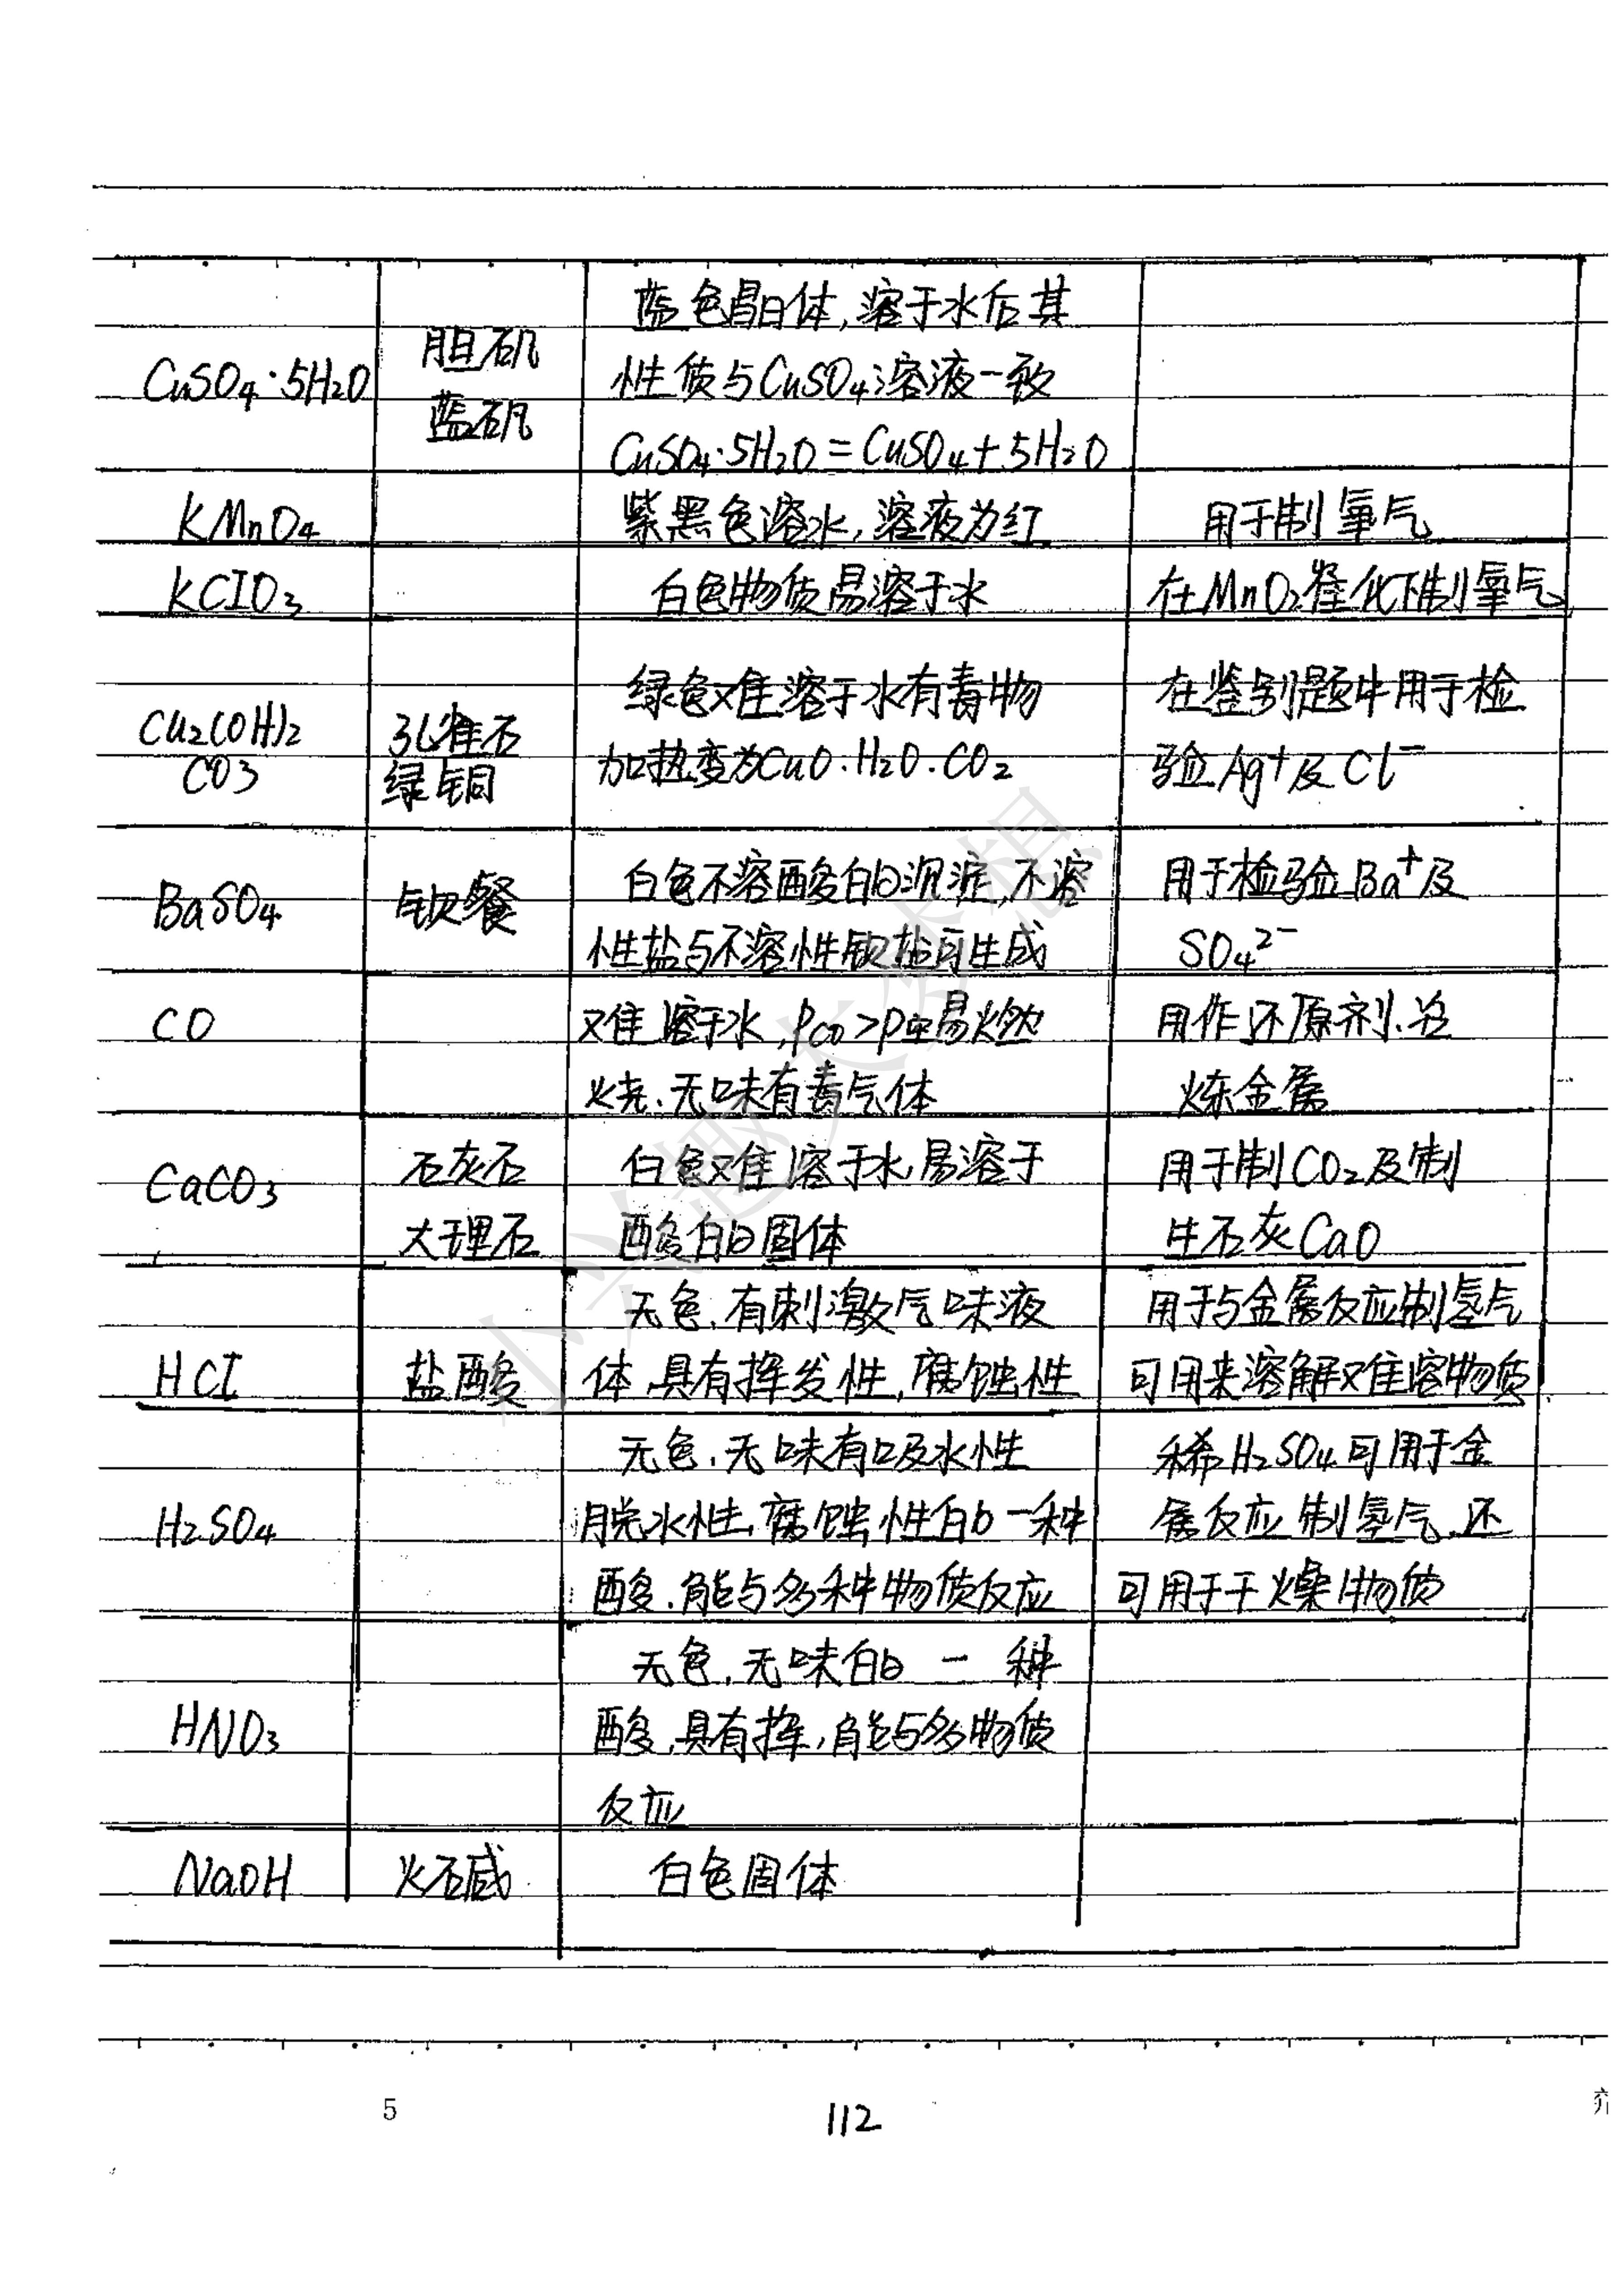 蓝色晶体,溶于水后其
胆矾
CuSO₄·5H₂O
性质与CuSO₄溶液一致
蓝矾
CuSO₄·5H₂O=CuSO₄+5H₂O
KMnO₄
紫黑色溶水,溶液为红
用于制氧气
KClO₃
白色物质易溶于水
在MnO₂催化下制氧气
绿色难溶于水有毒物
在鉴别题中用于检
Cu₂(OH)₂
CO₃
孔雀石
绿铜
加热变为CuO·H₂O·CO₂
验Ag⁺及Cl⁻
BaSO₄
钡餐
白色不溶酸的沉淀,不溶
用于检验Ba⁺及
性盐与不溶性钡盐可生成
SO₄²⁻
CO
难溶于水,ρco>ρ空易燃
用作还原剂,冶
烧、无味有毒气体
炼金属
CaCO₃
石灰石
白色难溶于水易溶于
用于制CO₂及制
大理石
酸的固体
生石灰CaO
无色,有刺激气味液
用于与金属反应制氢气
HCl
盐酸
体,具有挥发性,腐蚀性
可用来溶解难溶物质
无色,无味有吸水性
稀H₂SO₄可用于金
H₂SO₄
脱水性,腐蚀性的一种
属反应制氢气,还
酸,能与多种物质反应
可用于干燥物质
无色,无味的一种
HNO₃
酸,具有挥,能与多物质
反应
NaOH
火碱
白色固体
5
112
小兴趣大梦想